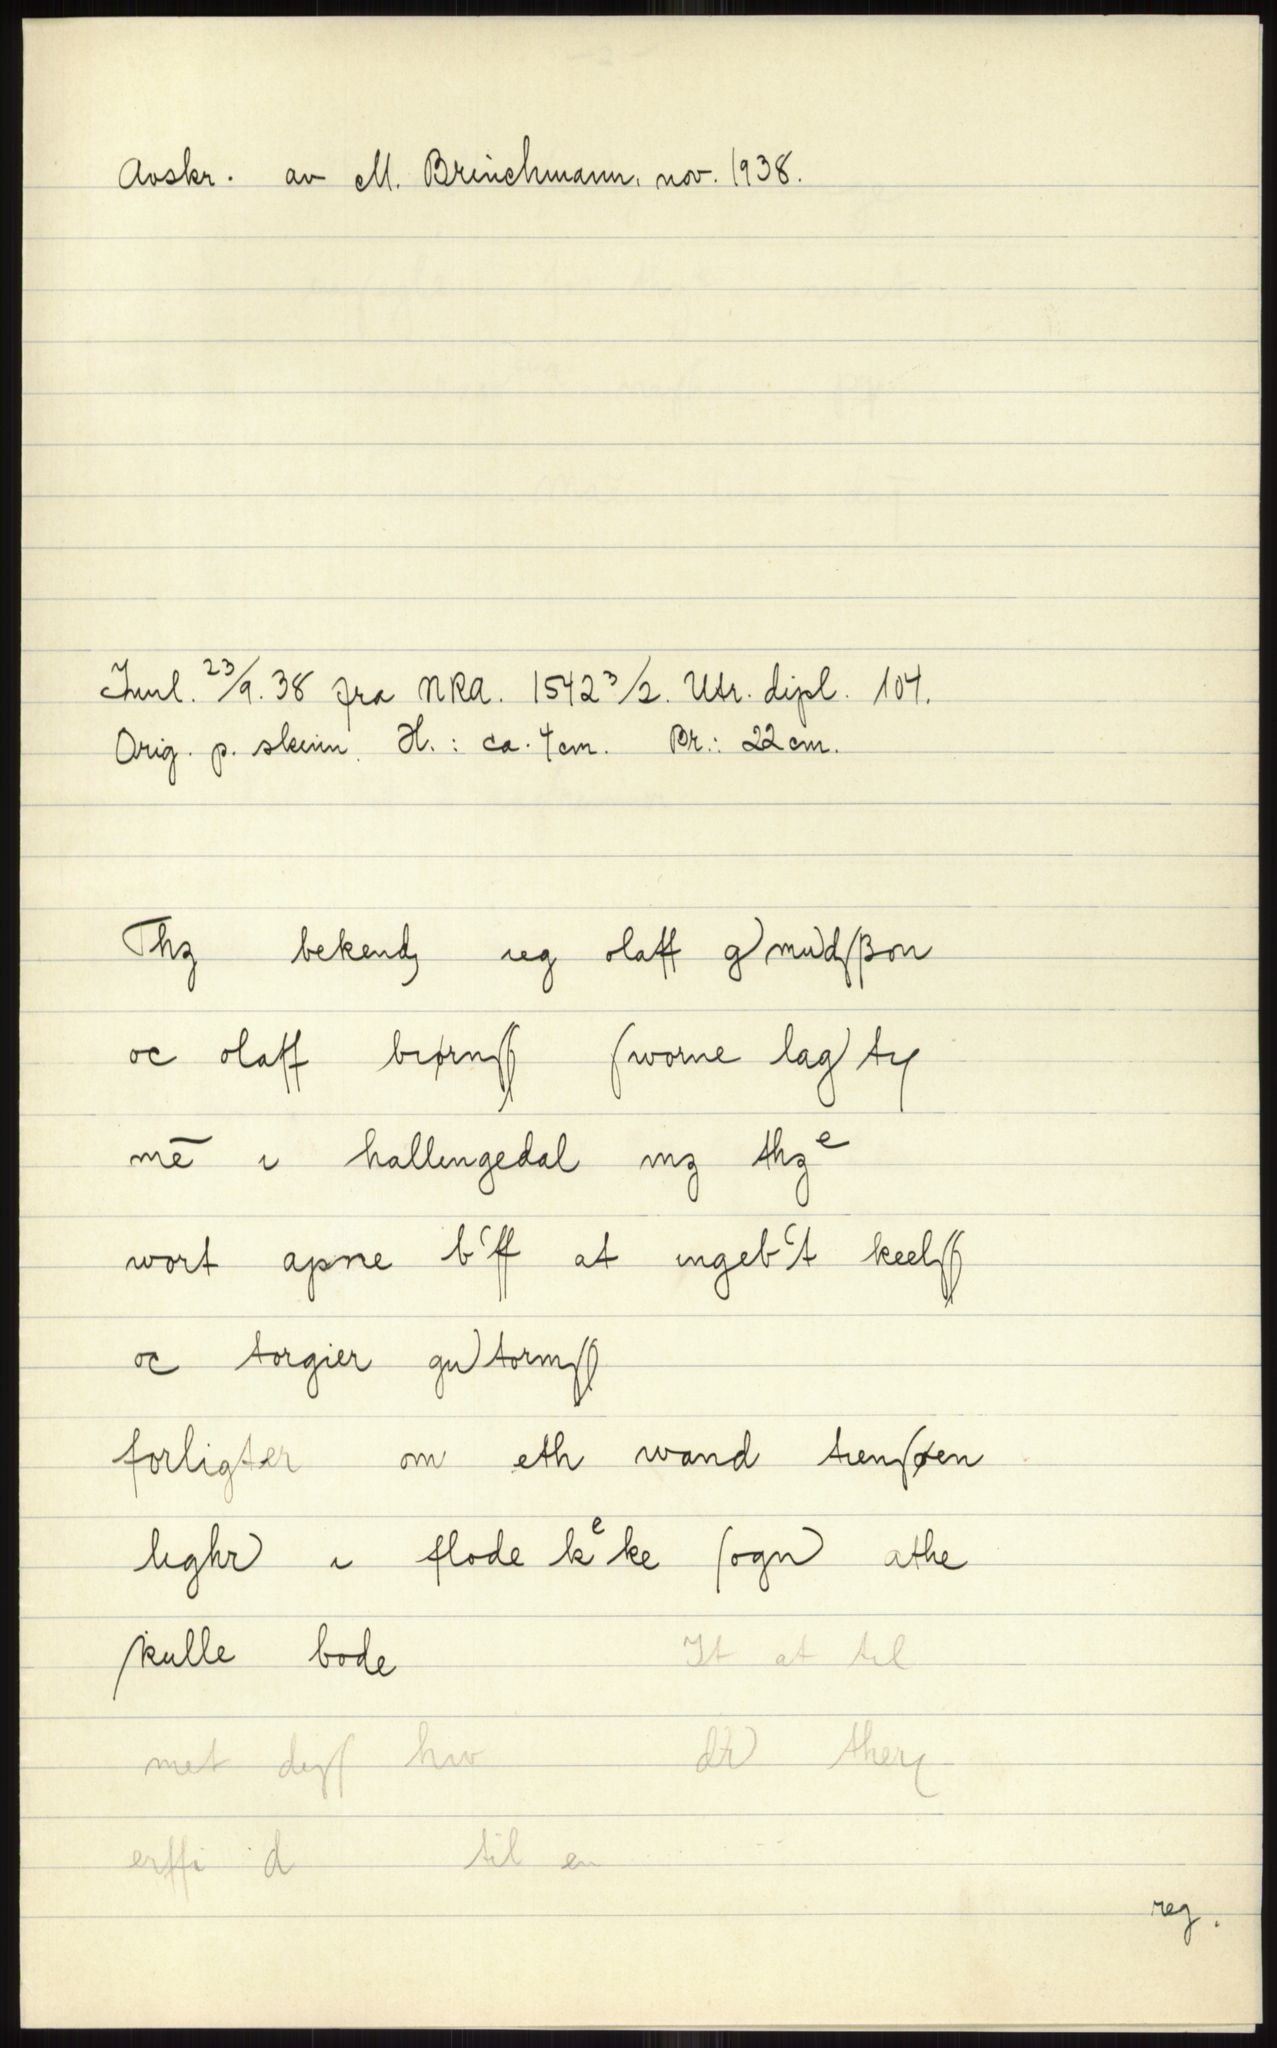 Avskr. av M. Brinchmann, nov. 1938.
Innl. 23/9. 38 fra NRA. 1542 3/2. Utr. dipl. 104.
Orig. p. skinn. H.: ca. 4 cm. Br.: 22 cm.
Thꝫ bekendꝫ ieg olaff g)mu)dſßon
oc olaff biørnſſ ſworne lag)tꝭ
me̅ i hallingedal mꝫ thꝫͤ
wort apne b'ff at ingeb't keelſſ
oc torgier gu)tormſſ
forligter om eth wand trenſøen
lighr) i flode kͤke ſogn) athe
ſkulle bode It at til
met deſſ hw dr) therꝭ
erffi d til en
reg.